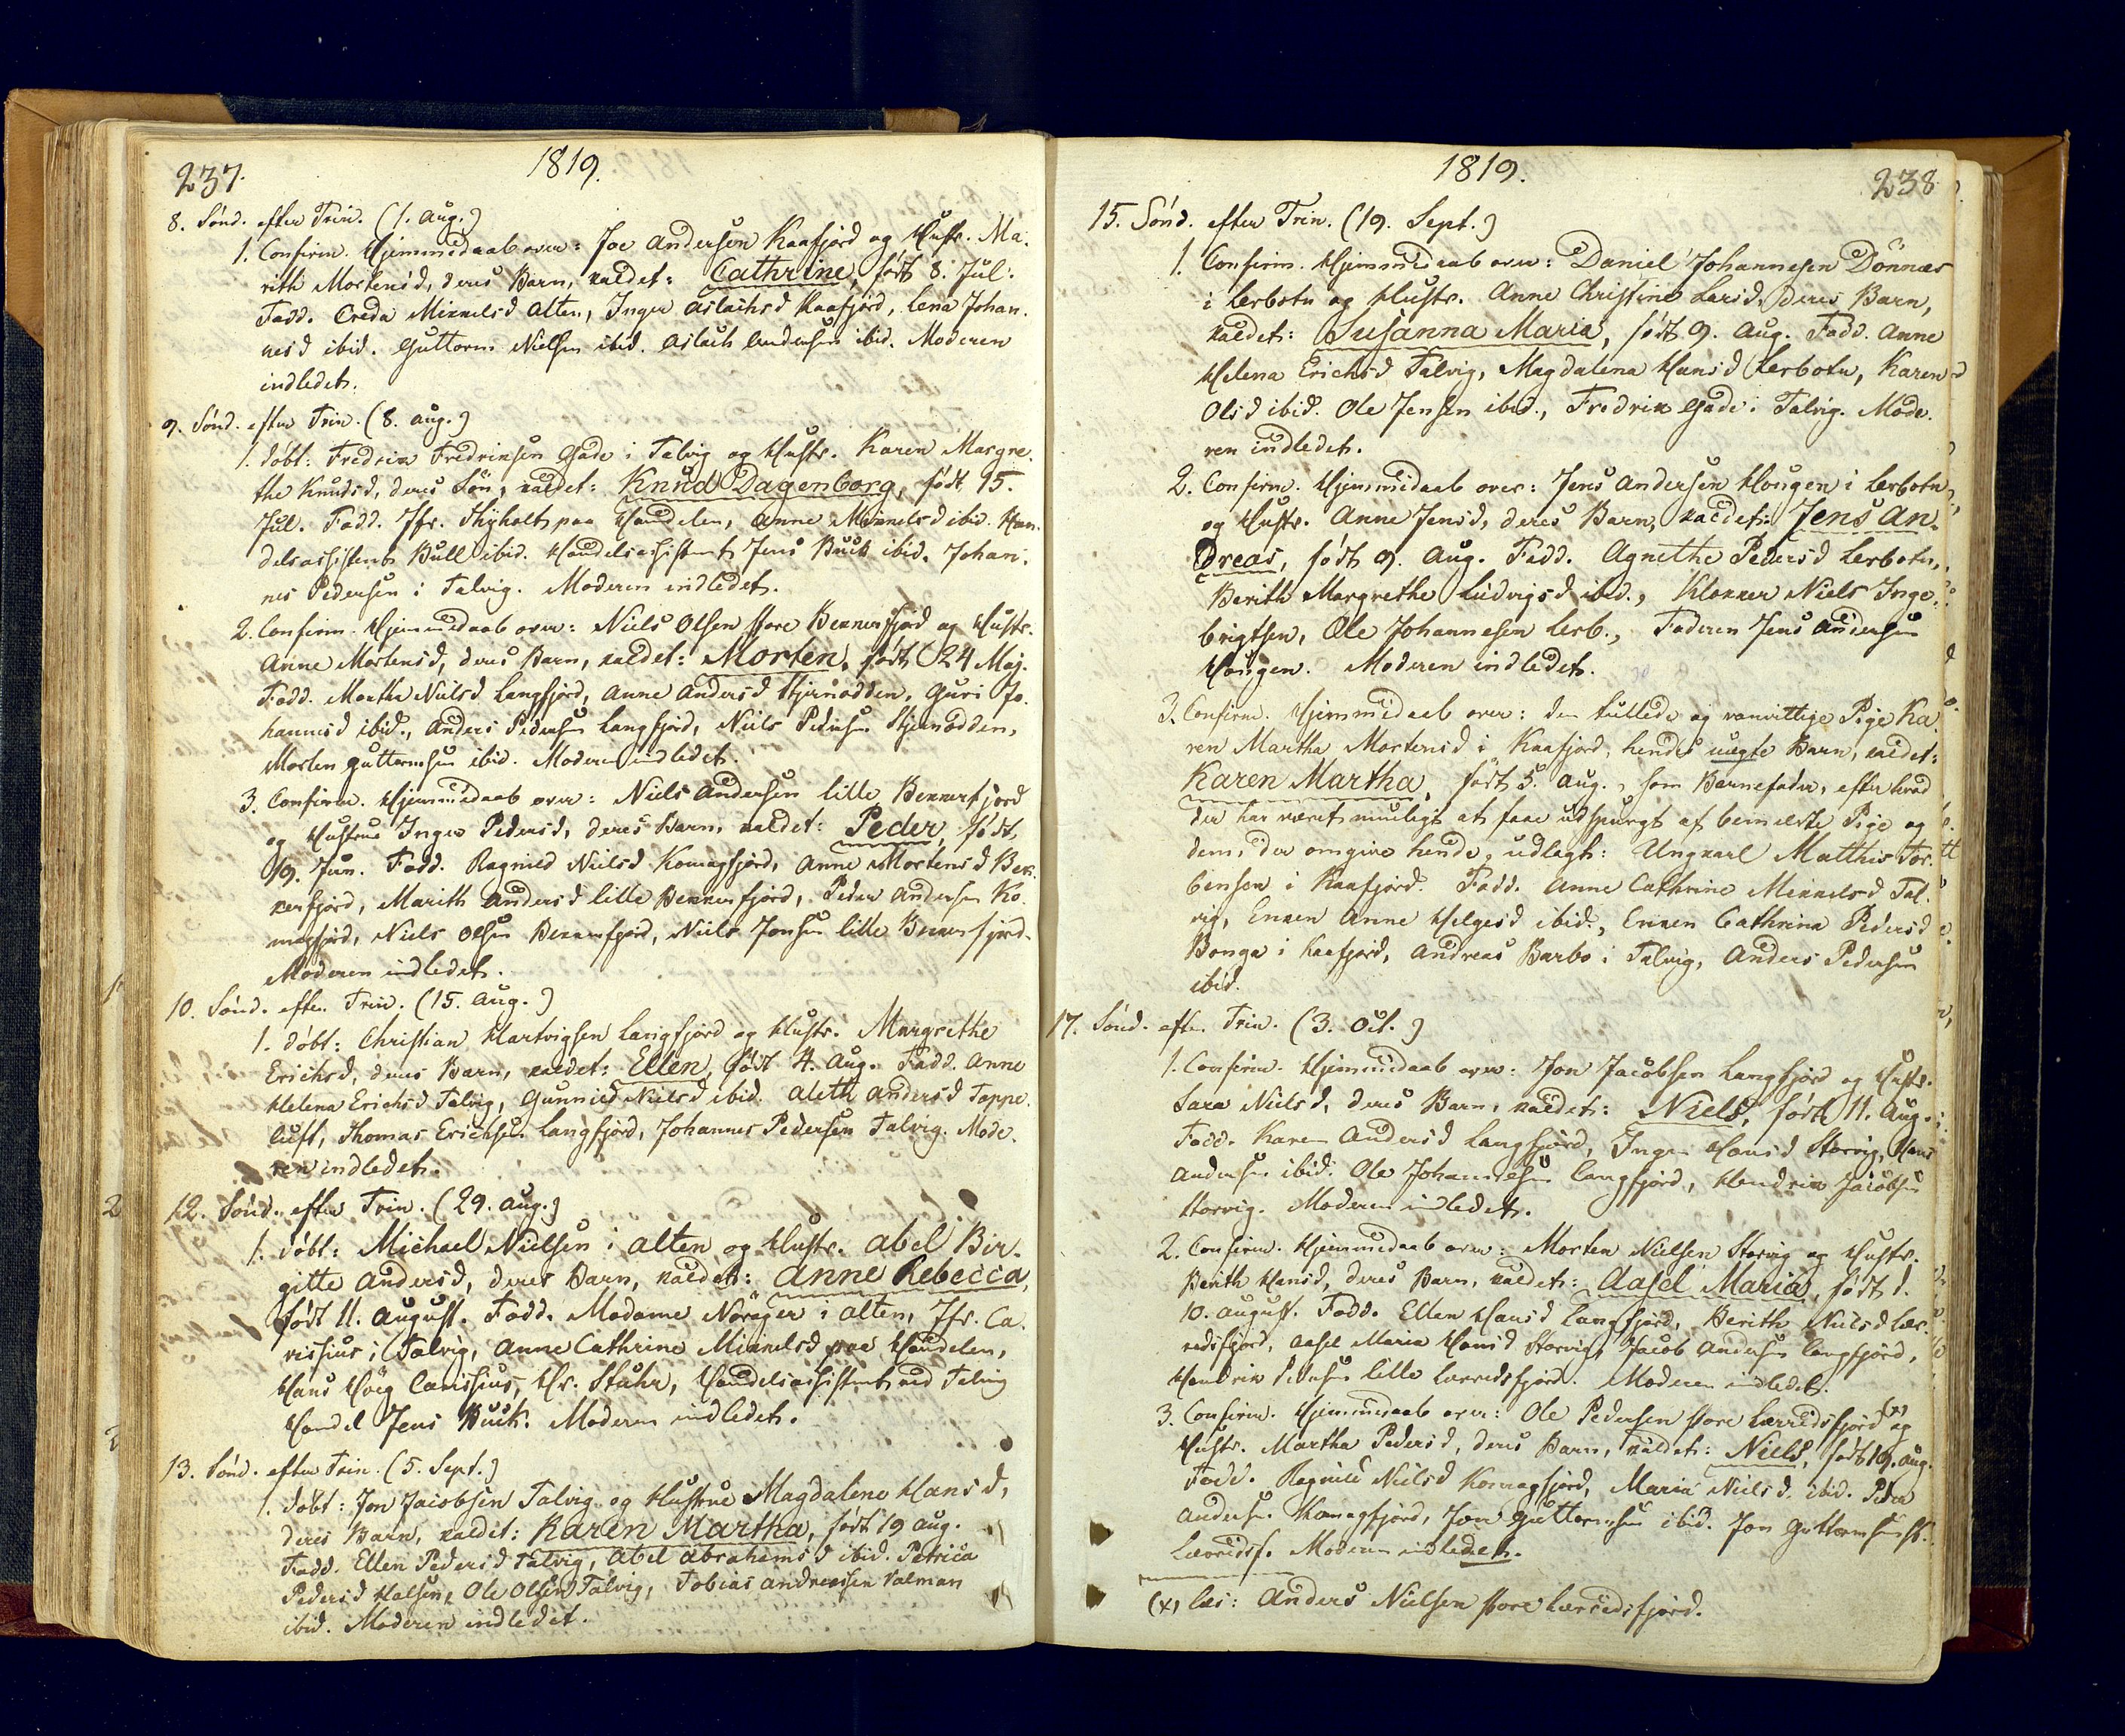 237.
1819.
8. Sónd. efter Trin. (1. Aug.)
1. Confirm. Hjemmedaab over: Joe Andersen Kaafjord og Hustr. Ma-
rith Mortensd, deres Barn, kaldet: Cathrine, født 8. Jul.
Fadd. Creda Mikkelsd Alten, Inger Aslachsd Kaafjord, Lena Johan-
nesd ibid. Guttorm Nielsen ibid. Aslach Andersen ibid. Moderen
indledet.
9. Sónd. efter Trin. (8. Aug.)
1. döbt: Fredrik Fredriksen Gade i Talvig og Hustr. Karen Margre-
the Knudsd, deres Sön, kaldet: Knud Dagenborg, født 15.
Jul. Fadd. Jfr. Thÿholt paa Handelen, Anne Mikkelsd ibid. Han-
delsassistent Bull ibid. Handelsassistent Jens Buck ibid. Johan-
nes Pedersen i Talvig. Moderen indledet.
2. Confirm. Hjemmedaab over: Niels Olsen Store Bekkerfjord og Hustr.
Anne Mortensd, deres Barn, kaldet: Morten, født 24 Maj.
Fadd. Martha Nielsd Langfjord, Anne Andersd Stjernodden, Guri Jo-
hannesd ibid., Anders Pedersen Langfjord, Niels Pedersen Stjernodden,
Morten Guttormsen ibid. Moderen indledet.
3. Confirm. Hjemmedaab over: Niels Andersen lille Bekkerfjord
og Hustrue Inger Pedersd, deres Barn, kaldet: Peder, født
19. Jun. Fadd. Ragnild Nielsd Komagfjord, Anne Mortensd Bek-
kerfjord, Marith Andersd lille Bekkerfjord, Peder Andersen Ko-
magfjord, Niels Olsen Bekkerfjord, Niels Jonsen lille Bekkerfjord.
Moderen indledet.
10. Sónd. efter Trin. (15. Aug.)
1. döbt: Christian Hartvigsen Langfjord og Hustr. Margrethe
Erichsd, deres Barn, kaldet: Ellen, født 4. Aug. Fadd. Anne
Helena Erichsd Talvig, Gunnild Nielsd ibid. Aleth Andersd Toppe-
luft, Thomas Erichsen Langfjord, Johannes Pedersen Talvig. Mode-
ren indledet.
12. Sónd. efter Trin. (29. Aug.)
1. döbt: Michael Nielsen i Alten og Hustr. Abel Bir-
gitte Andersd, deres Barn, kaldet: Anne Rebecca,
født 11. August. Fadd. Madame Norager i Alten, Jfr. Ca-
rissius i Talvig, Anne Cathrine Mikkelsd paa Handelen,
Hans Höeg Carissius, Hr. Stuhr, Handelsassistent ved Talvig
Handel Jens Buck. Moderen indledet.
13. Sónd. efter Trin. (5. Sept.)
1. döbt: Jon Jacobsen Talvig og Hustrue Magdaline Hansd,
deres Barn, kaldet: Karen Martha, født 19 Aug.
Fadd. Ellen Pedersd Talvig, Abel Abrahamsd ibid. Petrica
Pedersd Halsen, Ole Olsen Talvig, Tobias Andreassen Valman
ibid. Moderen indledet.
1819.
238
15. Sónd. efter Trin. (19. Sept.)
1. Confirm. Hjemmedaab over: Daniel Johannesen Dönnæs
i Lerbotn og Hustr. Anne Christine Larsd, deres Barn,
kaldet: Susanna Maria, født 9. Aug. Fadd. Anne
Helena Erichsd Talvig, Magdalena Hansd Lerbotn, Karen
Olsd ibid. Ole Jensen ibid., Fredrik Gade i Talvig. Mode-
ren indledet.
2. Confirm. Hjemmedaab over: Jens Andersen Hougen i Lerbotn
og Hustr. Anne Jensd, deres Barn, kaldet: Jens An-
dreas, født 9. Aug. Fadd. Agnethe Pedersd Lerbotn,
Berith Margrethe Ludvigsd ibid., Klokker Niels Inge-
brigtsen, Ole Johannesen Lerb., Faderen Jens Andersen
Hougen. Moderen indledet.
3. Confirm. Hjemmedaab over: den tullede og vanvittige Pige Ka-
ren Martha Mortensd i Kaafjord, hendes uægte Barn, kaldet:
Karen Martha, født 5. Aug., som Barnefader, efter hvad
der har været mueligt at faae udspurgt af bemeldte Pige og
dem, der omgive hende, udlagt: Ungkarl Mathis Tor-
bensen i Kaafjord. Fadd. Anne Cathrine Mikkelsd Tal-
vig, Enken Anne Helgesd ibid., Enken Cathrina Pedersd
Bonga i Kaafjord, Andreas Barbo i Talvig, Anders Pedersen
ibid.
17. Sónd. efter Trin. (3. Oct.)
1. Confirm. Hjemmedaab over: Jon Jacobsen Langfjord og Hustr.
Sara Nielsd, deres Barn, kaldet: Niels, født 11. Aug.
Fadd. Karen Andersd Langfjord, Inger Hansd Storvig, Hans
Andersen ibid. Ole Johannesen Langfjord, Hendrik Jacobsen
Storvig. Moderen indledet.
2. Confirm. Hjemmedaab over: Morten Nielsen Storvig og Hustr.
Berith Hansd, deres Barn, kaldet: Aasel Maria, født d.
10. August. Fadd. Ellen Hansd Langfjord, Berith Nielsd Lær-
redsfjord, Aasel Maria Hansd Storvig, Jacob Andersen Langfjord,
Hendrik Pedersen lille Lærredsfjord. Moderen indledet.
3. Confirm. Hjemmedaab over: Ole Pedersen Store Lærredsfjord (x) og
Hustr. Martha Pedersd, deres Barn, kaldet: Niels, født 19. Aug.
Fadd. Ragnild Nielsd Komagfjord, Maria Nielsd ibid. Peder
Andersen Komagfjord, Jon Guttormsen ibid. Jon Guttormsen St.
Lærredsf. Moderen indledet.
(x) læs: Anders Nielsen Store Lærredsfjord.